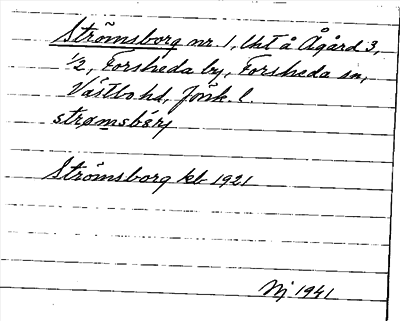 Strömsborg nr. 1, Uht å Ågård 3,
1/2, Forsheda by, Forsheda sn,
Västbo hd, Jönk. l.
strømsbérj
Strömsborg kb 1921
Nj 1941